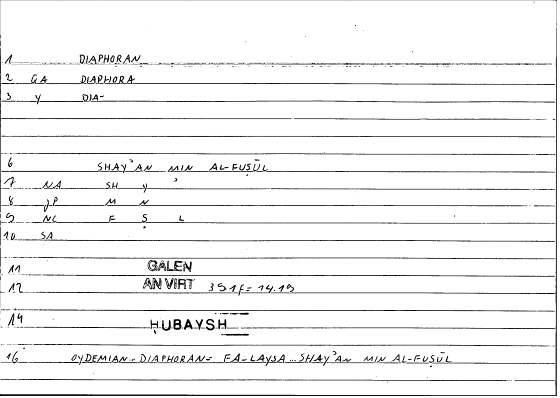 1 DIAPHORAN
2 GA DIAPHORA
3 Y DIA-
6 SHAYʾAN MIN AL-FUṢŪL
7 NA SH Y ʾ
8 JP M N
9 NC F Ṣ L
10 SA
11 GALEN
12 AN VIRT 351F= 14.15
14 ḤUBAYSH
16 OYDEMIAN- DIAPHORAN= FA-LAYSA...SHAYʾAN MIN AL-FUṢŪL